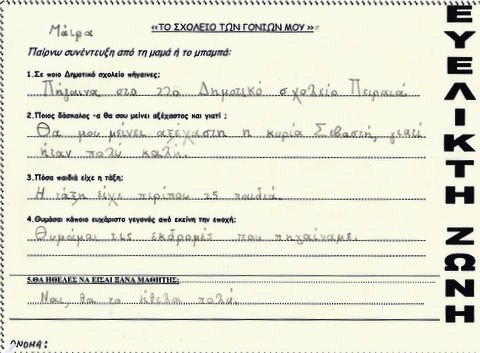 Μάιρα
«ΤΟ ΣΧΟΛΕΙΟ ΤΩΝ ΓΟΝΙΩΝ ΜΟΥ»
Παίρνω συνέντευξη από τη μαμά ή το μπαμπά:
1.Σε ποιο Δημοτικό σχολείο πήγαινες;
Πήγαινα στο 22ο Δημοτικό σχολείο Πειραιά
2.Ποιος δάσκαλος -α θα σου μείνει αξέχαστος και γιατί ;
Θα μου μείνει αξέχαστη η κυρία Σεβαστή, γιατί
ήταν πολύ καλή.
3.Πόσα παιδιά είχε η τάξη;
Η τάξη είχε περίπου 25 παιδιά.
4.Θυμάσαι κάποιο ευχάριστο γεγονός από εκείνη την εποχή;
Θυμάμαι τις εκδρομές που πηγαίναμε.
5.ΘΑ ΗΘΕΛΕΣ ΝΑ ΕΙΣΑΙ ΞΑΝΑ ΜΑΘΗΤΗΣ;
Ναι, θα το ήθελα πολύ.
ΟΝΟΜΑ:
ΕΥΕΛΙΚΤΗ ΖΩΝΗ